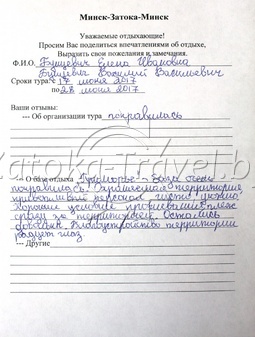 Минск-Затока-Минск
Уважаемые отдыхающие!
Просим Вас поделиться впечатлениями об отдыхе,
Выразить свои пожелания и замечания.
Ф.И.О. Бушевич Елена Ивановна
Бушевич Василий Васильевич
Сроки тура: с 17 июня 2017
по 28 июня 2017
Ваши отзывы:
--- Об организации тура понравилась
Zatoka-Travel.b
--- О базе отдыха Приморье - База очень
понравилась. Охраняемая территория,
приветливый персонал, чисто, уютно.
Хорошие условия проживания, пляж
сразу за территорией. Остались
довольны. Благоустройство территории
радует глаз.
--- Другие